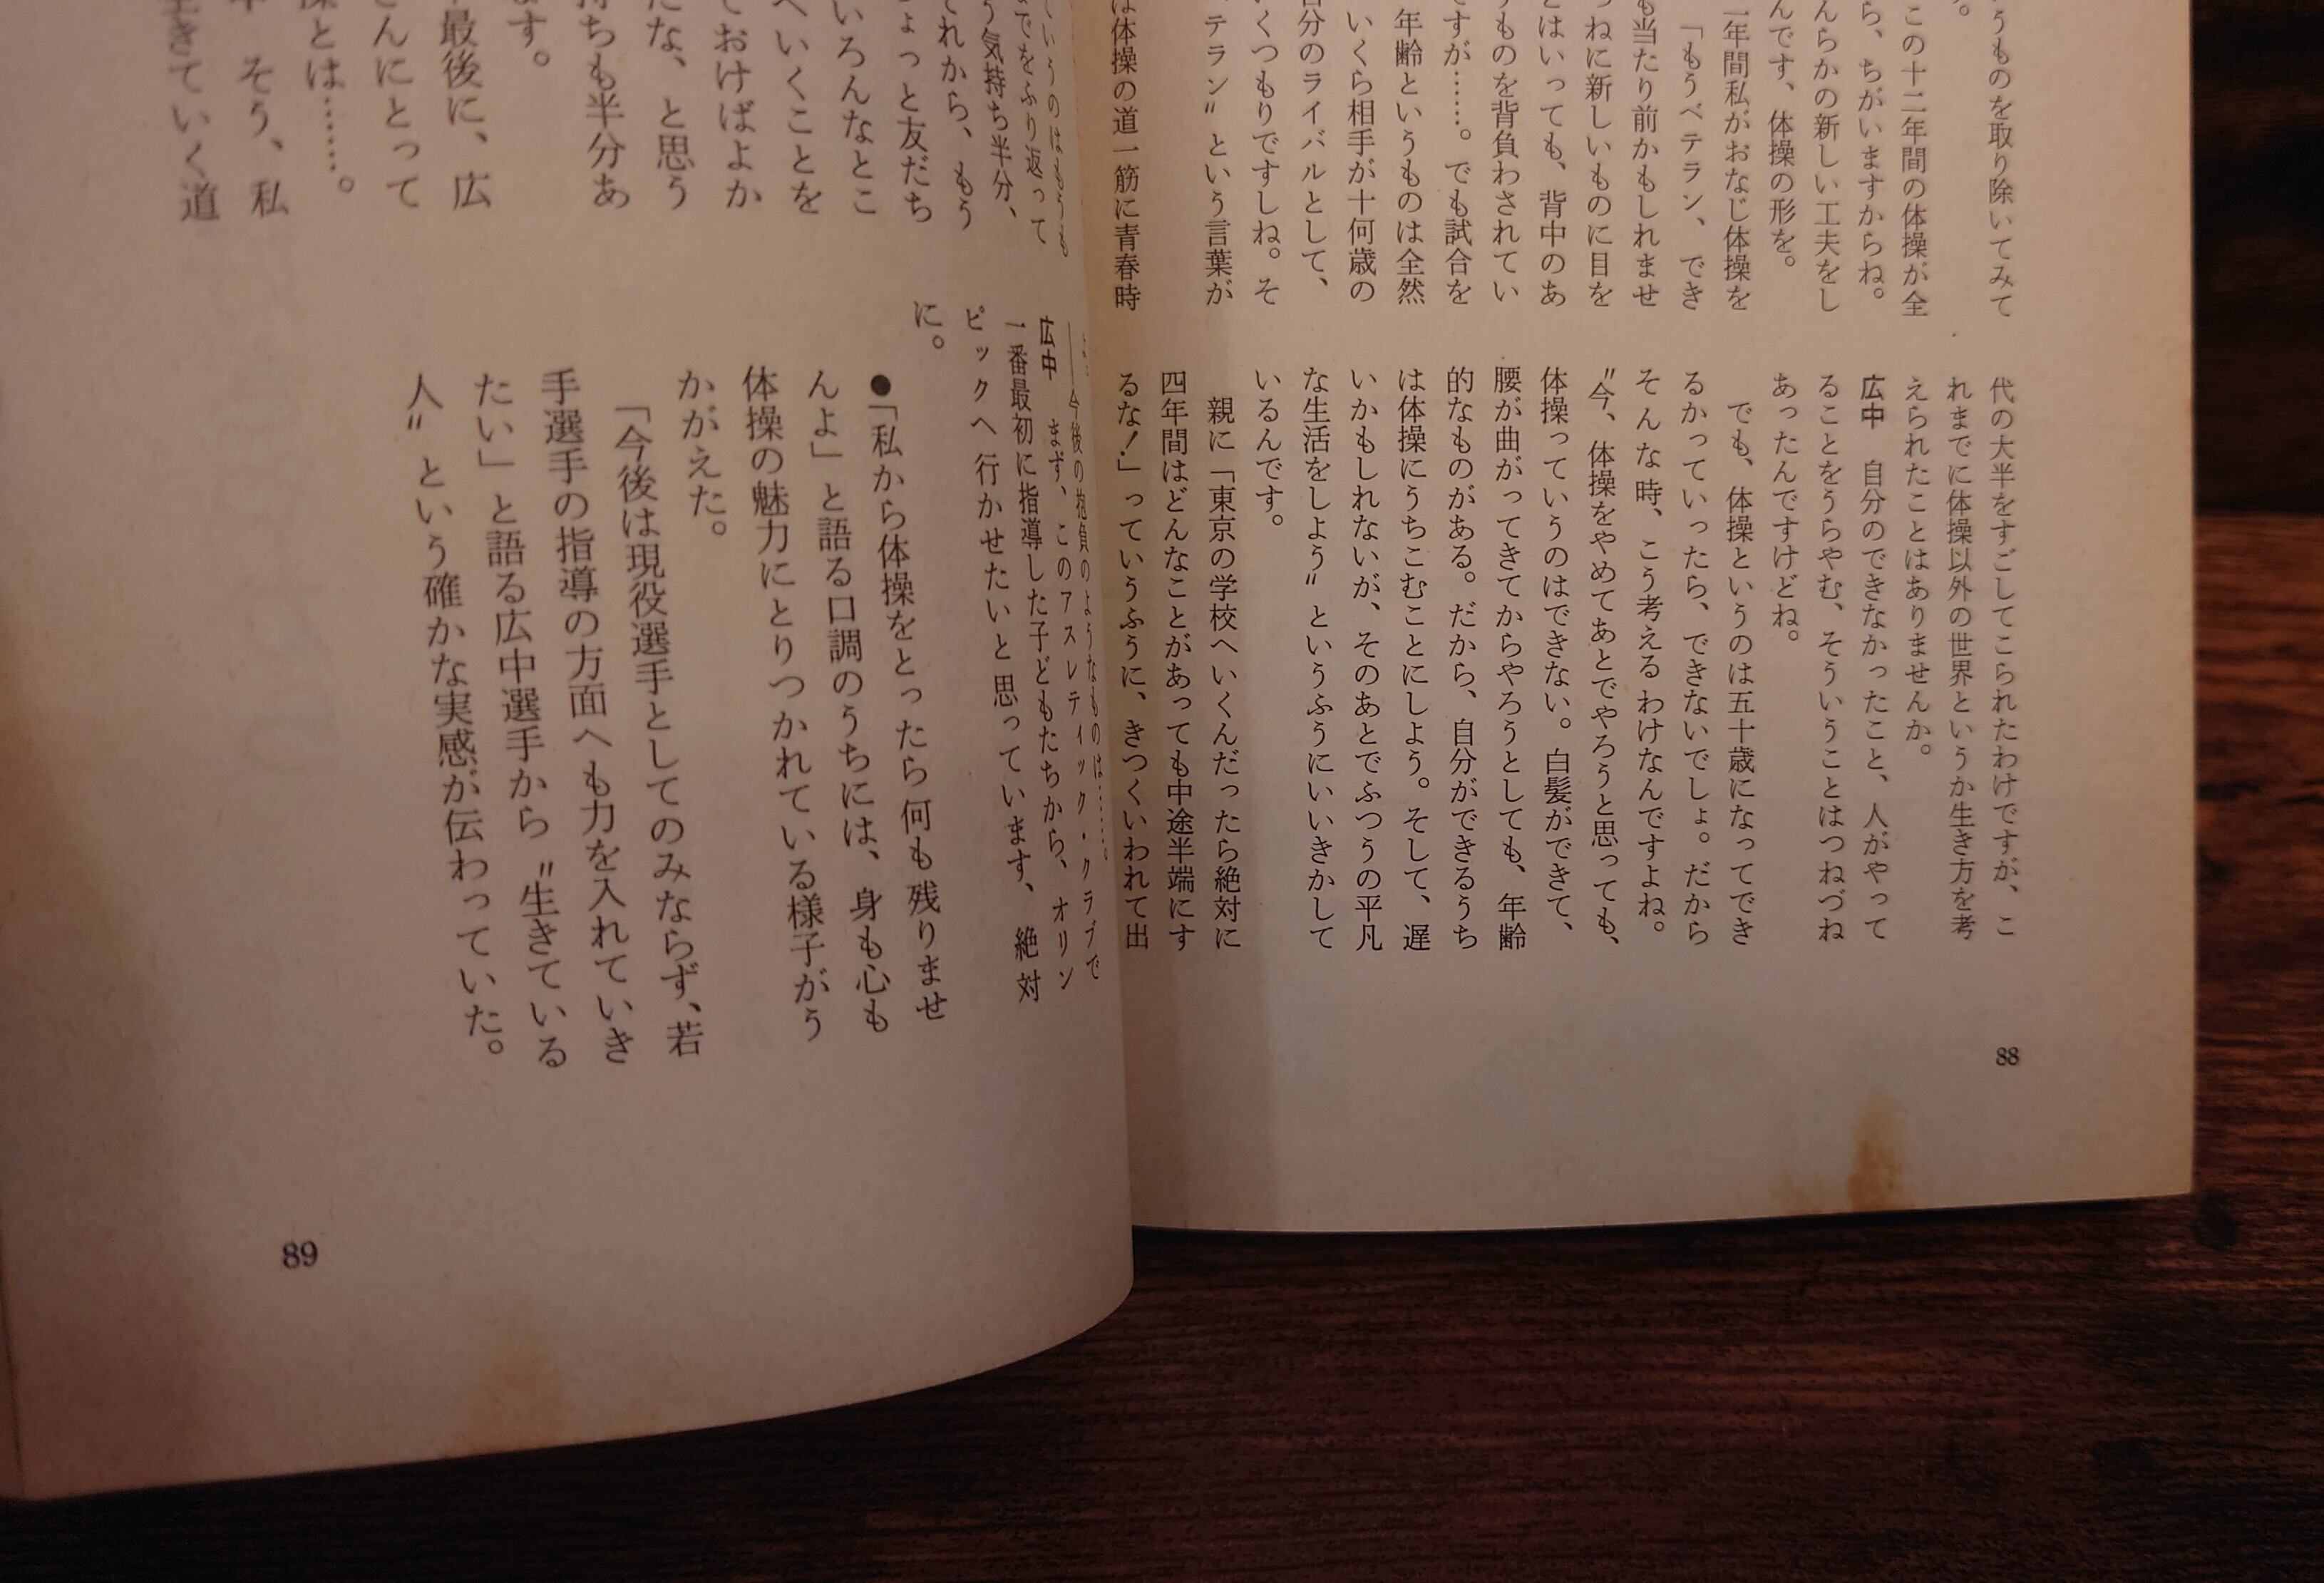 うものを取り除いてみて
。
この十二年間の体操が全
ら、ちがいますからね。
んらかの新しい工夫をし
んです、体操の形を。
二年間私がおなじ体操を
「もうベテラン、でき
も当たり前かもしれませ
つねに新しいものに目を
とはいっても、背中のあ
うものを背負わされてい
ですが……。でも試合を
年齢というものは全然
いくら相手が十何歳の
自分のライバルとして、
いくつもりですしね。そ
テラン〟という言葉が
は体操の道一筋に青春時
代の大半をすごしてこられたわけですが、こ
れまでに体操以外の世界というか生き方を考
えられたことはありませんか。
広中　自分のできなかったこと、人がやって
ることをうらやむ、そういうことはつねづね
あったんですけどね。
でも、体操というのは五十歳になってでき
るかっていったら、できないでしょ。だから
そんな時、こう考えるわけなんですよね。
〝今、体操をやめてあとでやろうと思っても、
体操っていうのはできない。白髪ができて、
腰が曲がってきてからやろうとしても、年齢
的なものがある。だから、自分ができるうち
は体操にうちこむことにしよう。そして、遅
いかもしれないが、そのあとでふつうの平凡
な生活をしよう〟というふうにいいきかして
いるんです。
親に「東京の学校へいくんだったら絶対に
四年間はどんなことがあっても中途半端にす
るな！」っていうふうに、きつくいわれて出
88
ていうのはもうも
までをふり返って
う気持ち半分、
それから、もう
ちょっと友だち
いろんなとこ
へいくことを
ておけばよか
たな、と思う
持ちも半分あ
ます。
最後に、広
さんにとって
操とは……。
中　そう、私
生きていく道
――今後の抱負のようなものは……。
広中　まず、このアスレティック・クラブで
一番最初に指導した子どもたちから、オリン
ピックへ行かせたいと思っています、絶対
に。
●「私から体操をとったら何も残りませ
んよ」と語る口調のうちには、身も心も
体操の魅力にとりつかれている様子がう
かがえた。
「今後は現役選手としてのみならず、若
手選手の指導の方面へも力を入れていき
たい」と語る広中選手から〝生きている
人〟という確かな実感が伝わっていた。
89